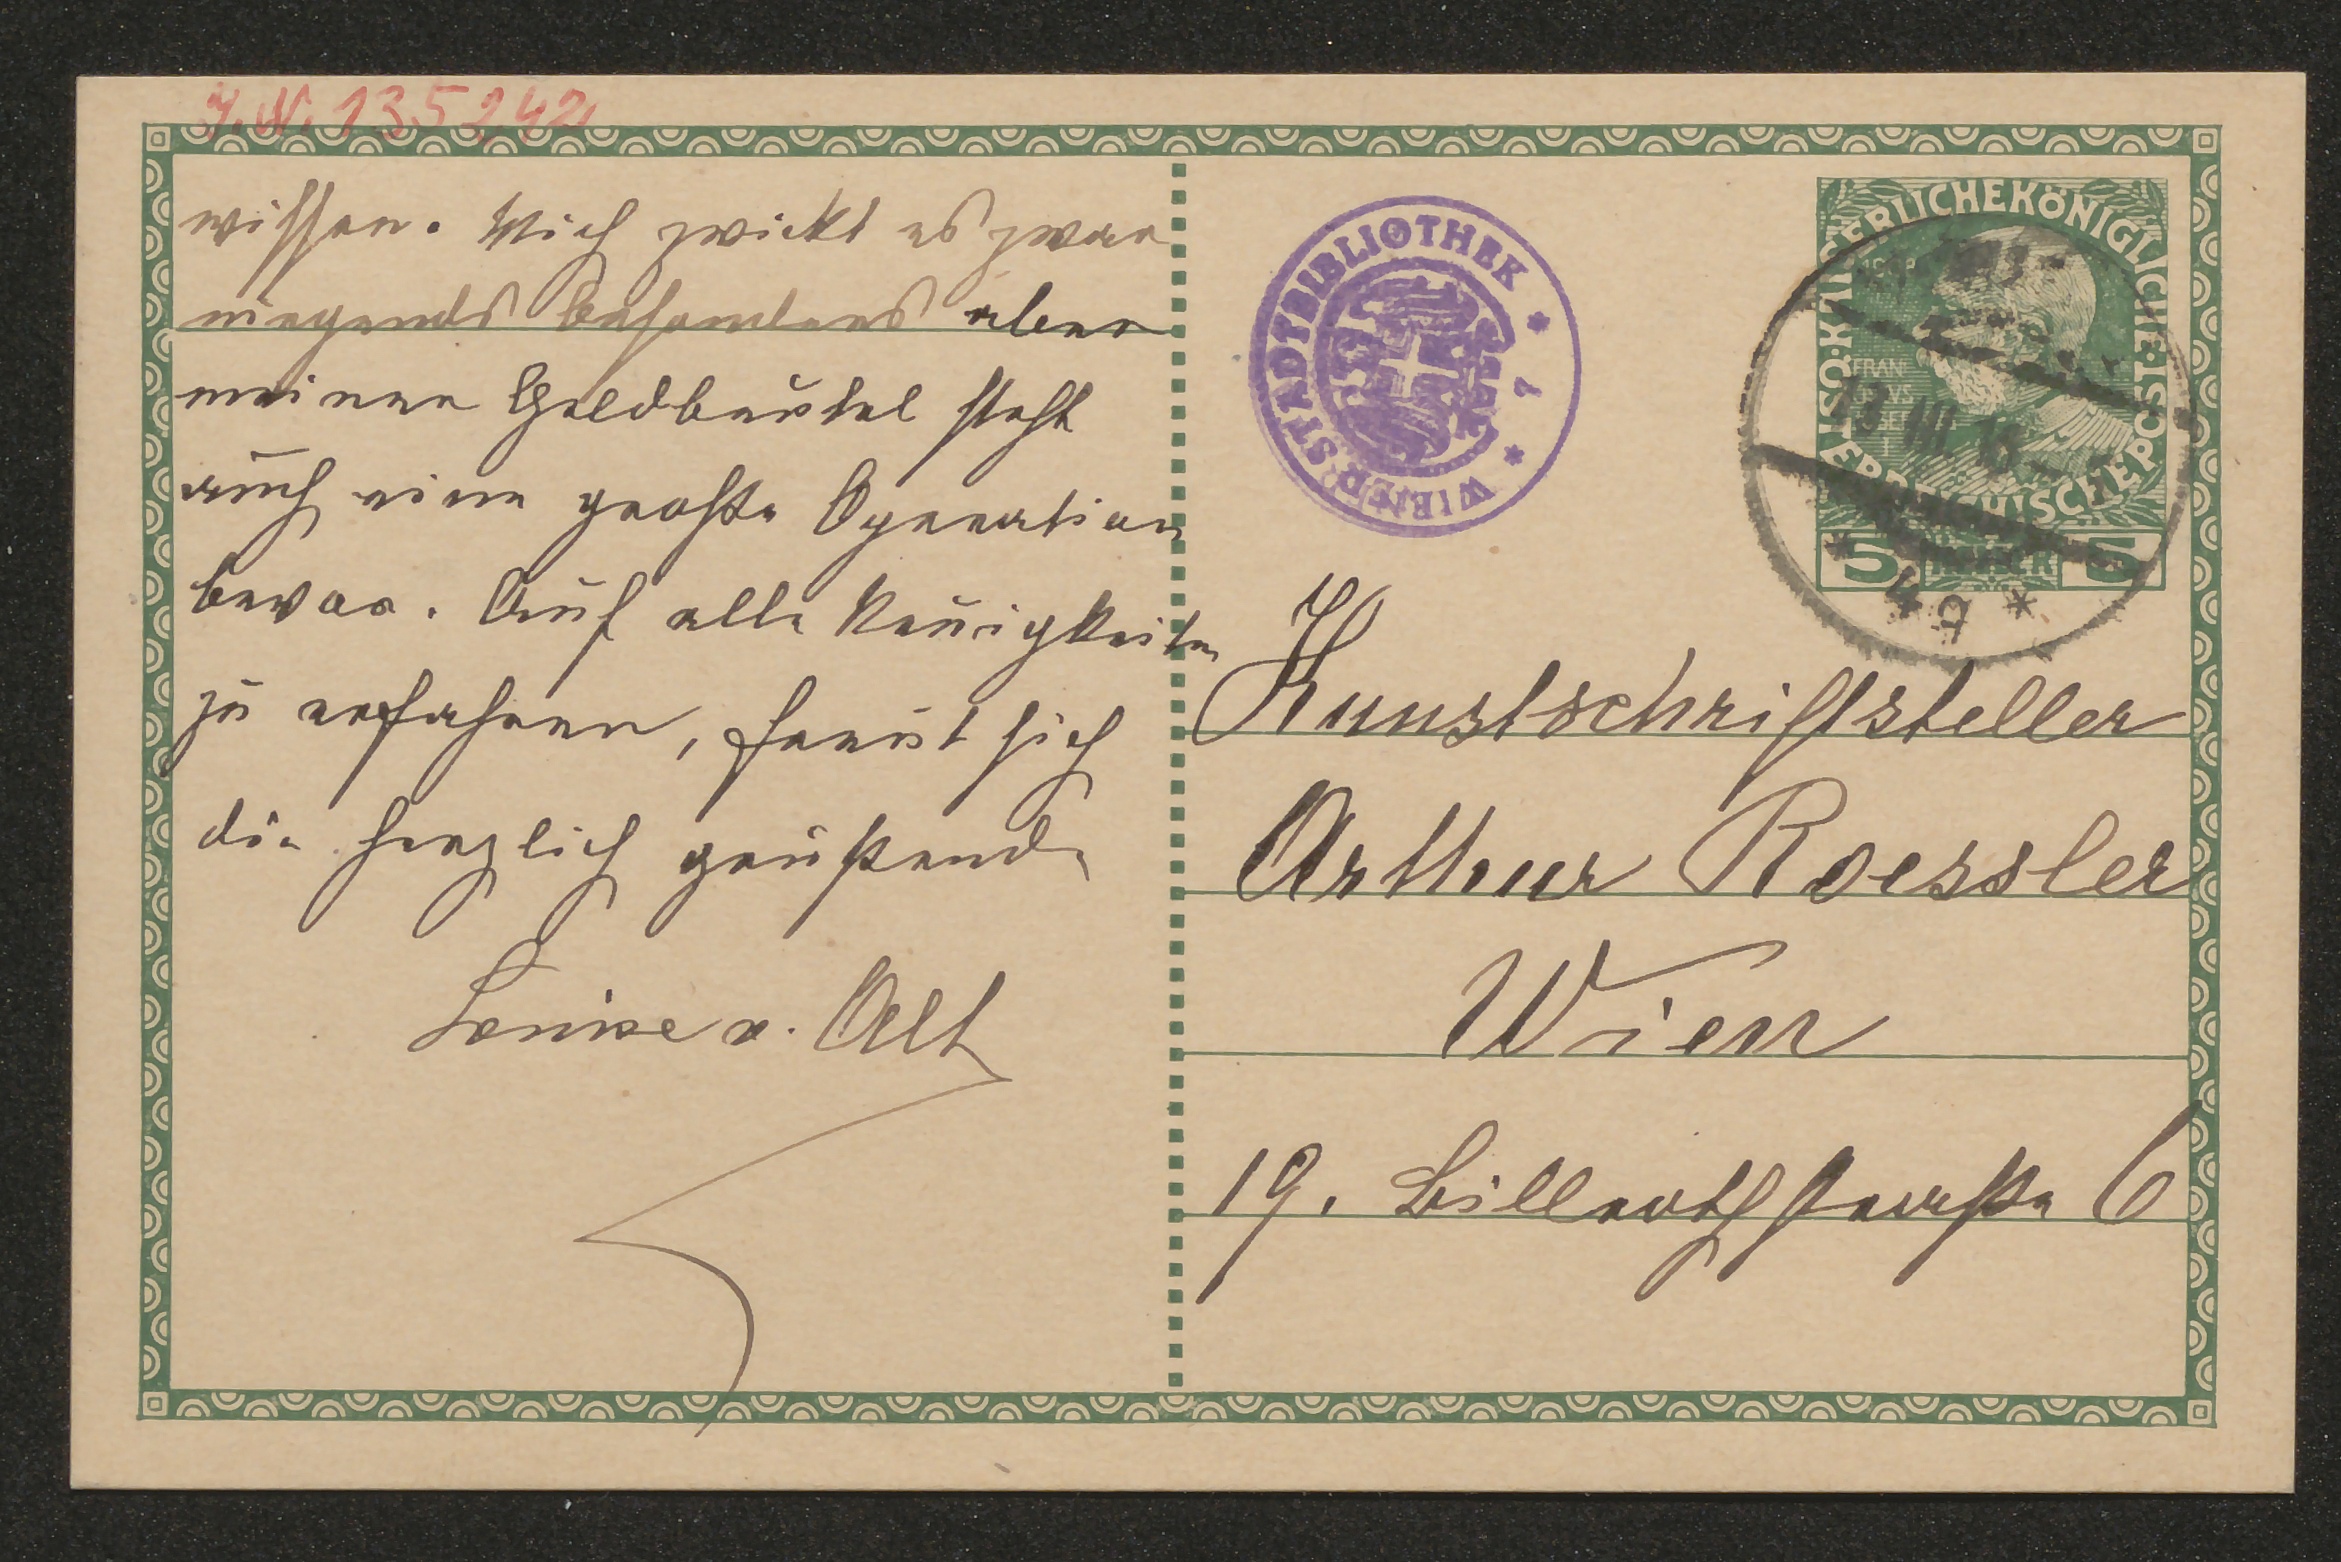 J.N. 135242
wissen. Mich zwickt es zwar
nirgends besonders aber
meinen Geldbeutel steht
auch eine große Operation
bevor. Auf alle Neuigkeiten
zu erfahren, freut sich
die herzlich grüßende
Louise v. Alt
WIENER STADTBIBLIOTHEK * 1 *
KAISERLICHEKÖNIGLICHE ÖSTERREICHISCHEPOST
1908
5 HELLER 5
13 III 16
* 4a *
Kunstschriftsteller
Arthur Roessler
Wien
19. Billrothstraße 6